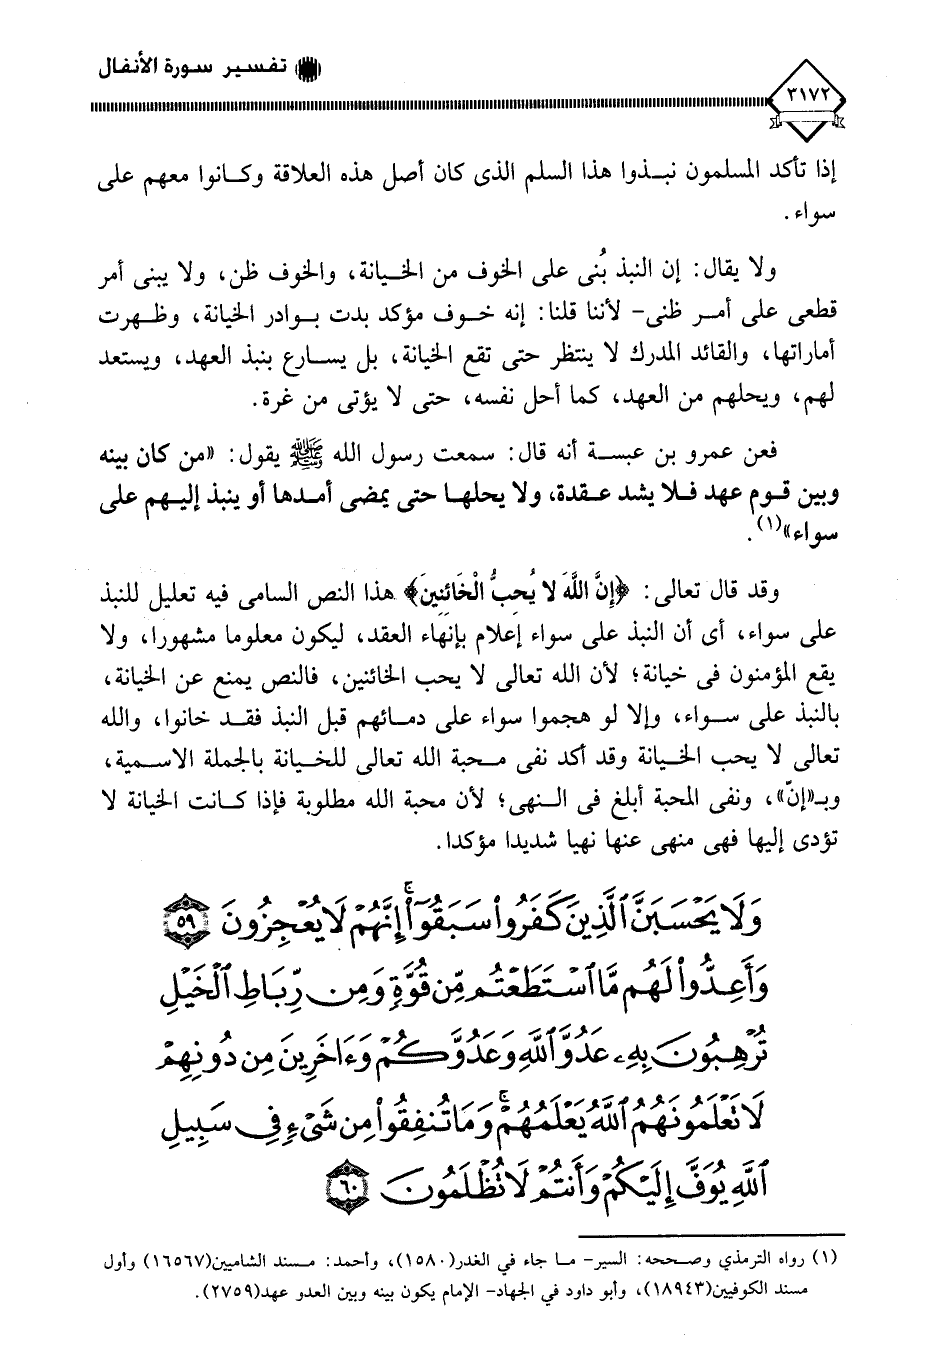 تفسير سورة الأنفال
٣١٧٢
إذا تأكد المسلمون نبذوا هذا السلم الذى كان أصل هذه العلاقة وكانوا معهم على
سواء.
ولا يقال: إن النبذ بُنى على الخوف من الخيانة، والخوف ظن، ولا يبنى أمر
قطعى على أمر ظنى- لأننا قلنا: إنه خوف مؤكد بدت بوادر الخيانة، وظهرت
أماراتها، والقائد المدرك لا ينتظر حتى تقع الخيانة، بل يسارع بنبذ العهد، ويستعد
لهم، ويحلهم من العهد، كما أحل نفسه، حتى لا يؤتى من غرة.
فعن عمرو بن عبسة أنه قال: سمعت رسول الله ﷺ يقول: «من كان بينه
وبين قوم عهد فلا يشد عقدة، ولا يحلها حتى يمضى أمدها أو ينبذ إليهم على
سواء»(١).
وقد قال تعالى: ﴿إِنَّ اللَّهَ لا يُحِبُّ الْخَائِنِينَ﴾ هذا النص السامى فيه تعليل للنبذ
على سواء، أى أن النبذ على سواء إعلام بإنهاء العقد، ليكون معلوما مشهورا، ولا
يقع المؤمنون فى خيانة؛ لأن الله تعالى لا يحب الخائنين، فالنص يمنع عن الخيانة،
بالنبذ على سواء، وإلا لو هجموا سواء على دمائهم قبل النبذ فقد خانوا، والله
تعالى لا يحب الخيانة وقد أكد نفى محبة الله تعالى للخيانة بالجملة الاسمية،
وبـ«إنّ»، ونفى المحبة أبلغ فى النهى؛ لأن محبة الله مطلوبة فإذا كانت الخيانة لا
تؤدى إليها فهى منهى عنها نهيا شديدا مؤكدا.
وَلَا يَحْسَبَنَّ ٱلَّذِينَ كَفَرُوا۟ سَبَقُوٓا۟ ۚ إِنَّهُمْ لَا يُعْجِزُونَ ٥٩
وَأَعِدُّوا۟ لَهُم مَّا ٱسْتَطَعْتُم مِّن قُوَّةٍ وَمِن رِّبَاطِ ٱلْخَيْلِ
تُرْهِبُونَ بِهِۦ عَدُوَّ ٱللَّهِ وَعَدُوَّكُمْ وَءَاخَرِينَ مِن دُونِهِمْ
لَا تَعْلَمُونَهُمُ ٱللَّهُ يَعْلَمُهُمْ ۚ وَمَا تُنفِقُوا۟ مِن شَىْءٍ فِى سَبِيلِ
ٱللَّهِ يُوَفَّ إِلَيْكُمْ وَأَنتُمْ لَا تُظْلَمُونَ ٦٠
(١) رواه الترمذي وصححه: السير- ما جاء في الغدر(١٥٨٠)، وأحمد: مسند الشاميين(١٦٥٦٧) وأول
مسند الكوفيين(١٨٩٤٣)، وأبو داود في الجهاد- الإمام يكون بينه وبين العدو عهد(٢٧٥٩).